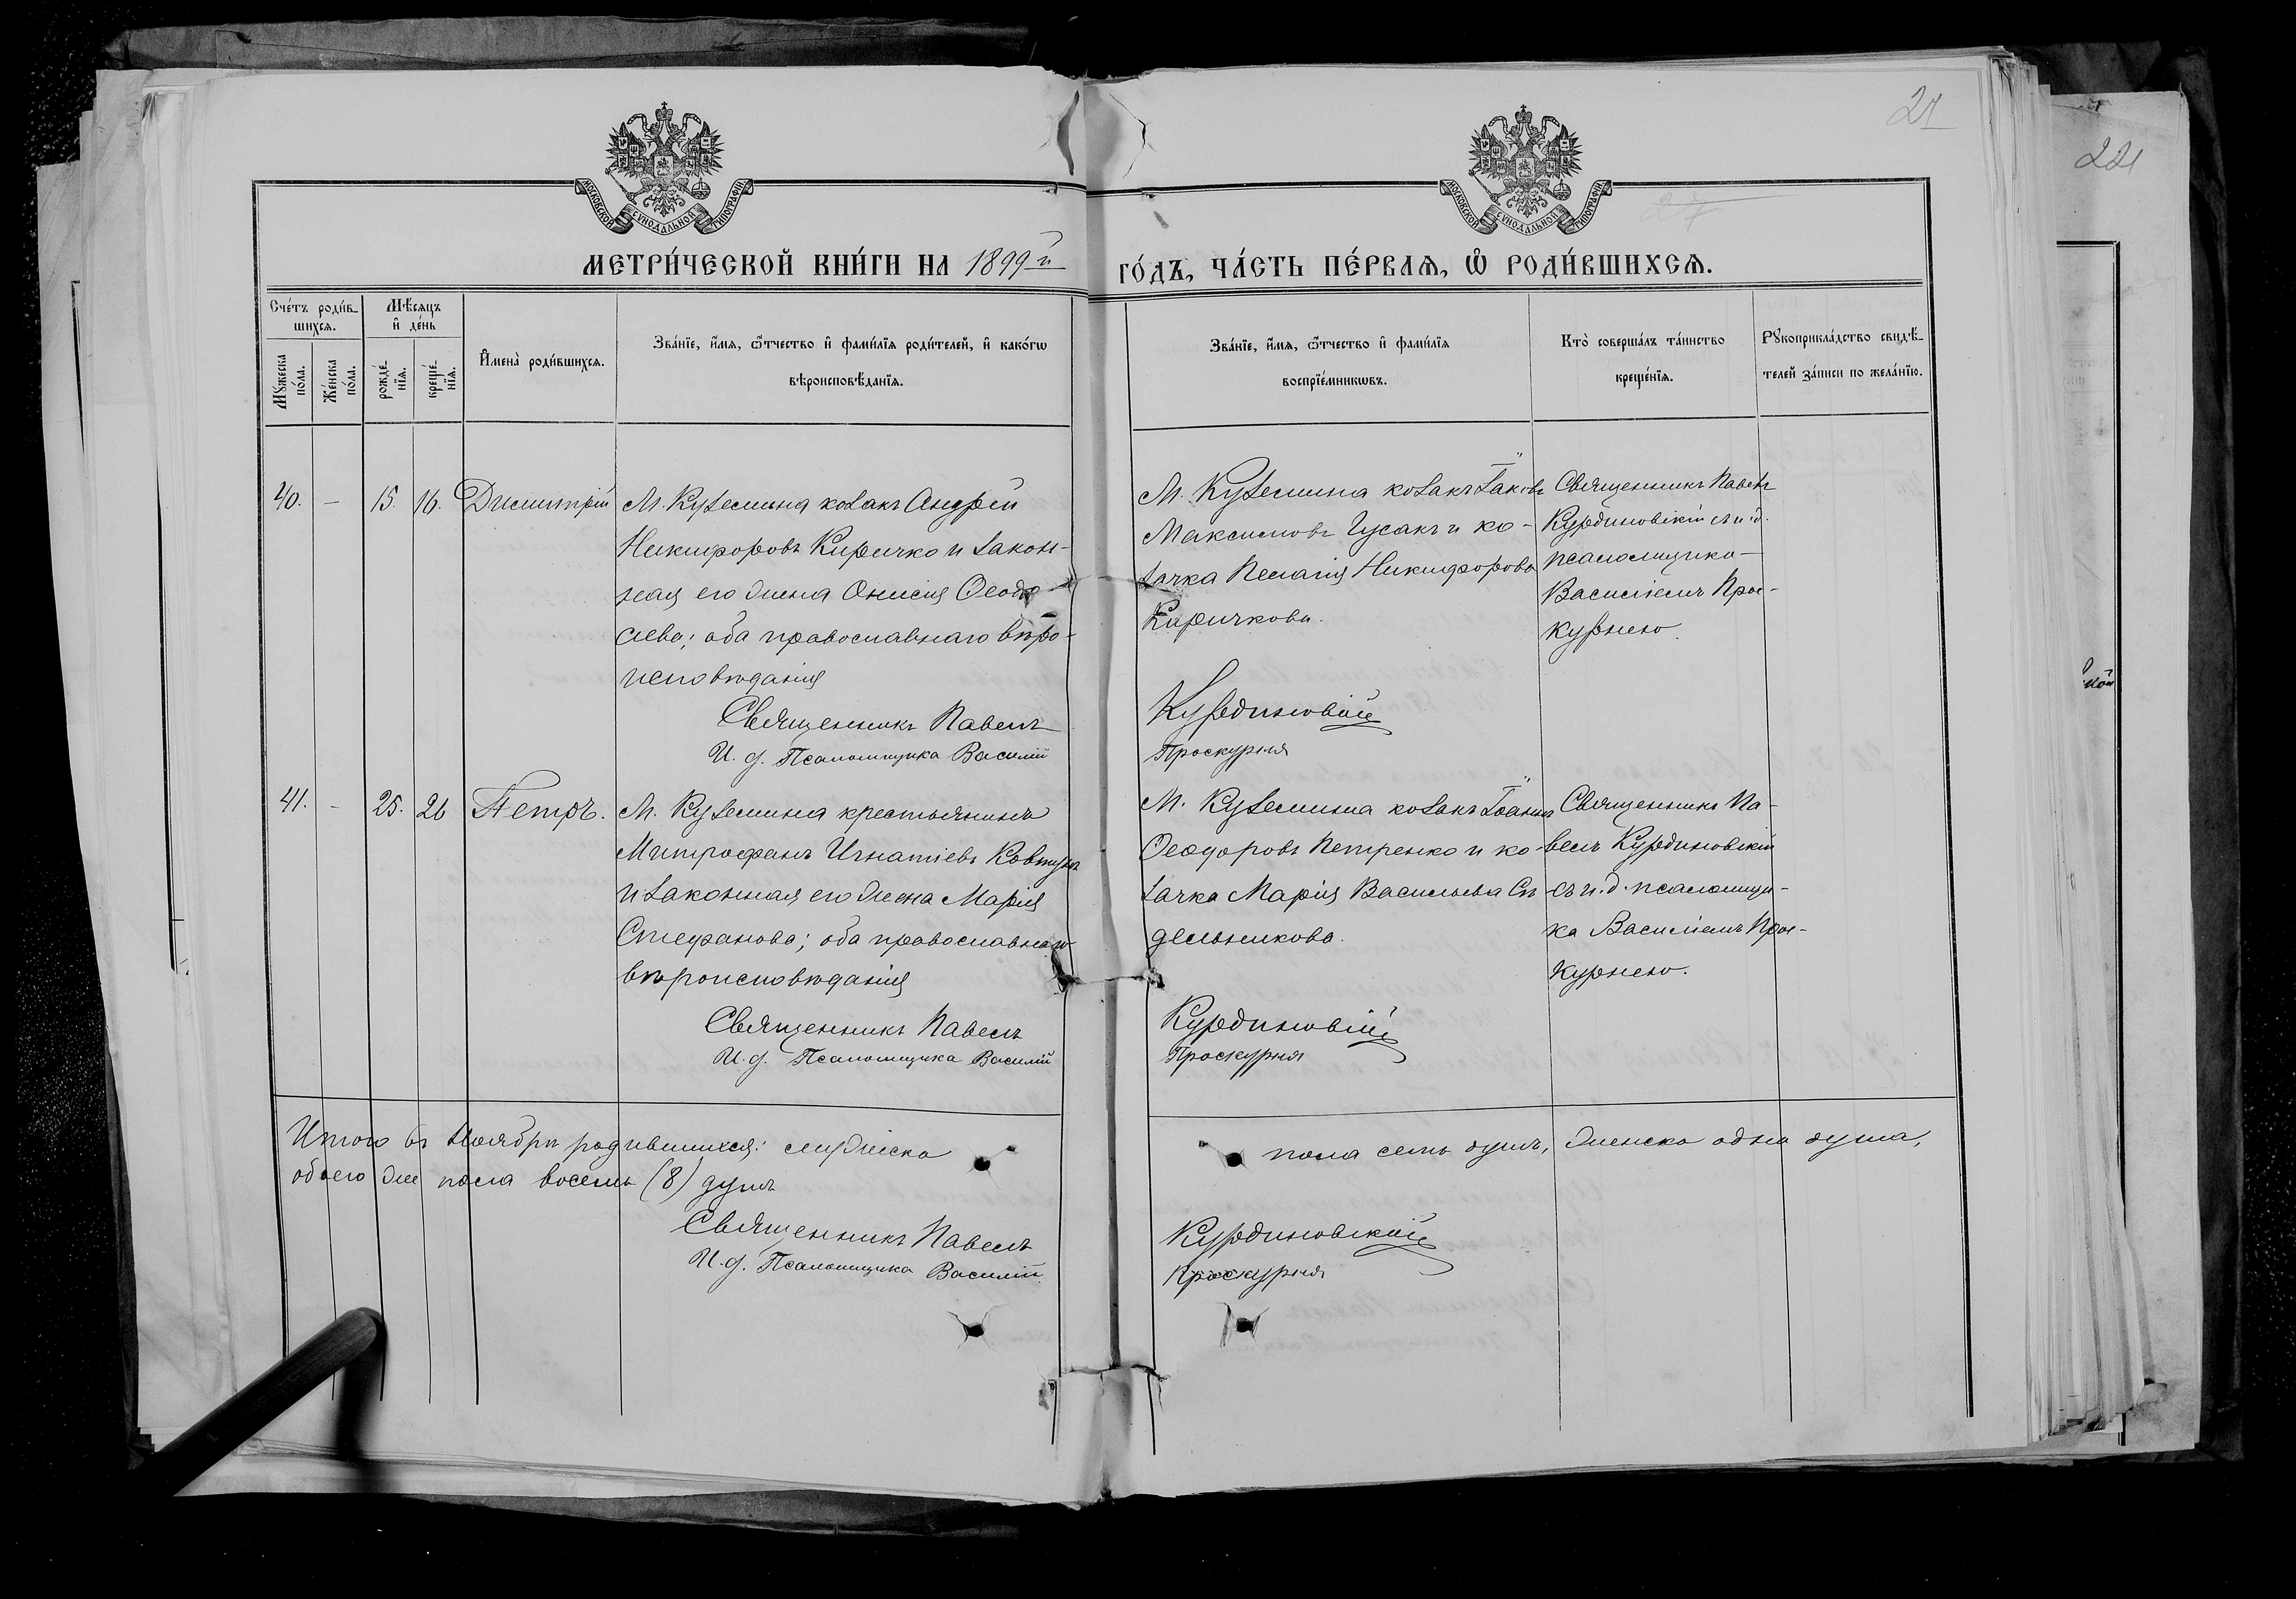 21
221
МОСКОВСКОЙ СѴНОДАЛЬНОЙ ТИПОГРАФІИ
МОСКОВСКОЙ СѴНОДАЛЬНОЙ ТИПОГРАФІИ
МЕТРИ́ЧЕСКОЙ КНИ́ГИ НА 1899й
ГО́ДЪ, ЧА́СТЬ ПЕ́РВАЯ, Ѡ҆ РОДИ́ВШИХСЯ.
Сче́тъ роди́в-
шихся.
Мꙋ́жеска по́ла.
Же́нска по́ла.
Мѣ́сяцъ и҆ де́нь
рожде́-нїя.
креще́-нїя.
И҆мена̀ роди́вшихся.
Зва́нїе, и҆́мя, ѻ҆́тчество и҆ фами́лїя роди́телей, и҆ како́гѡ
вѣроисповѣ́данїя.
Зва́нїе, и҆́мя, ѻ҆́тчество и҆ фами́лїя
воспрїе́мникѡвъ.
Кто̀ соверша́лъ та́инство
креще́нїя.
Рꙋкоприкла́дство свидѣ́-
телей за́писи по жела́нїю.
40. – 15. 16. Димитрій
М. Куземина козакъ Андрей
Никифоровъ Киричко и закон-
ная его жена Анисия Ѳеодо
сиева; оба православнаго веѣро-
исповѣданія
Священникъ Павелъ
И. д. Псаломщика Василій
М. Куземина козакъ Іаковъ
Максимовъ Гусакъ и ко-
зачка Пелагія Никифорова
Киричкова.
Курдиновскій
Проскурня
Священникъ Павелъ
Курдиновскій съ и. д.
псаломщика
Василіемъ Прос-
курнею.
41. – 25. 26 Петръ.
М. Куземина крестьянинъ
Митрофанъ Игнатіевъ Ковтунъ
и законная его жена Марія
Стефанова; оба православнаго
вѣроисповѣданія
Священникъ Павелъ
И. д. Псаломщика Василій
М. Куземина козакъ Іоаннъ
Ѳеодоровъ Петренко и ко-
зачка Марія Васильева Сѣ
дельникова.
Курдиновскій
Проскурня
Священникъ Па-
велъ Курдиновскій
съ и. д. псаломщи-
ка Василіемъ Прос-
курнею.
Итого въ Ноябрѣ родившихся: мужеска
пола семь душъ, женска одна душа,
обоего же пола восемь (8) душъ
Священникъ Павелъ
И. д. Псаломщика Василій
Курдиновскій
Проскурня